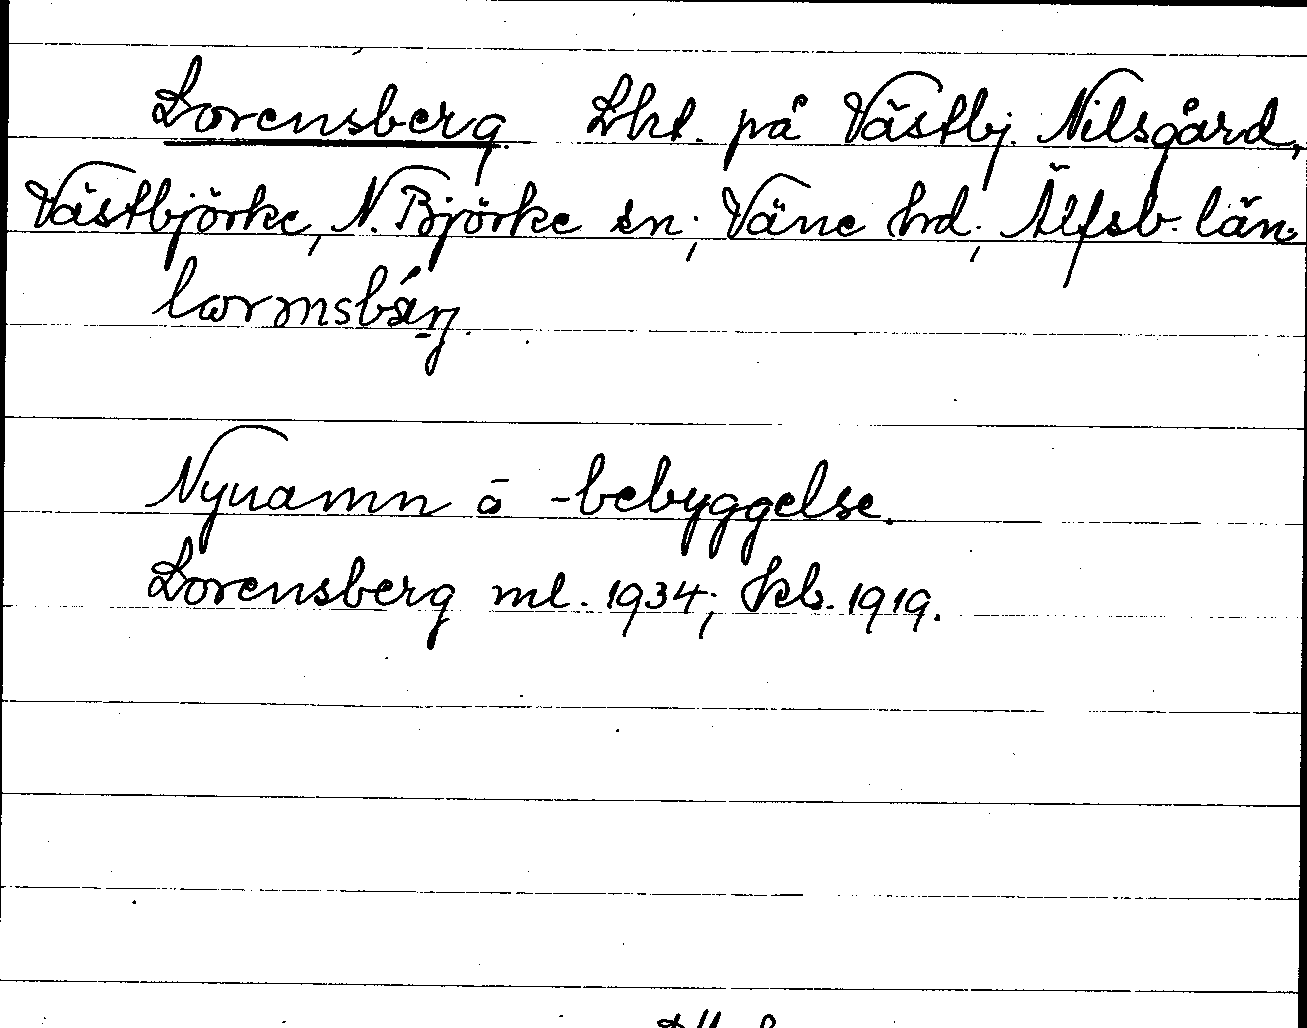 Lorensberg. Lht. på Västbj. Nilsgård,
Västbjörke, N. Björke sn; Väne hd; Älfsb. län.
Nynamn å -bebyggelse.
Lorensberg ml. 1934; kb. 1919.